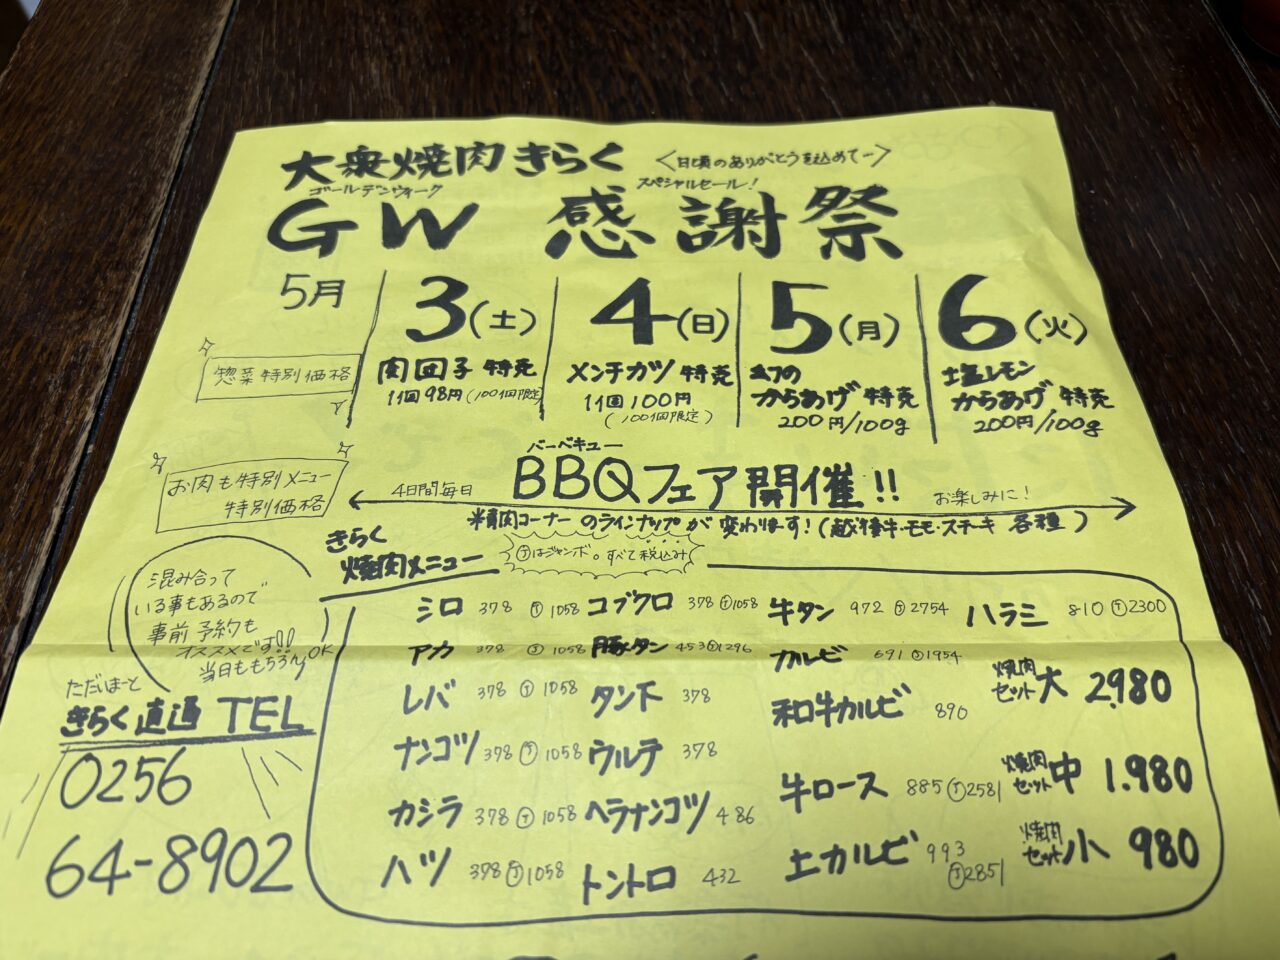 大衆焼肉きらく
〈日頃のありがとうを込めて〜〉
ゴールデンウィーク
スペシャルセール!
GW 感謝祭
5月
3(土)
肉団子 特売
1個98円(100個限定)
4(日)
メンチカツ 特売
1個100円
(100個限定)
5(月)
からあげ 特売
200円/100g
6(火)
塩レモン
からあげ 特売
200円/100g
惣菜特別価格
お肉も特別メニュー
特別価格
バーベキュー
4日間毎日
BBQフェア開催!!
お楽しみに!
精肉コーナーのラインナップが変わります!(越後牛・モモ・ステーキ 各種)
きらく
焼肉メニュー
Ⓙはジャンボ。すべて税込み
シロ 378 Ⓙ1058
アカ 378 Ⓙ1058
レバ 378 Ⓙ1058
ナンコツ 378 Ⓙ1058
カシラ 378 Ⓙ1058
ハツ 378 Ⓙ1058
コブクロ 378 Ⓙ1058
豚タン 453 Ⓙ1296
タン下 378
ウルテ 378
ヘラナンコツ 486
トントロ 432
牛タン 972 Ⓙ2754
カルビ 691 Ⓙ1954
和牛カルビ 890
牛ロース 885 Ⓙ2581
上カルビ 993
Ⓙ2851
ハラミ 810 Ⓙ2300
焼肉
セット 大 2980
焼肉
セット 中 1.980
焼肉
セット 小 980
混み合って
いる事もあるので
事前予約も
オススメです!!
当日ももちろんOK
ただいまーと
きらく直通TEL
0256
64-8902